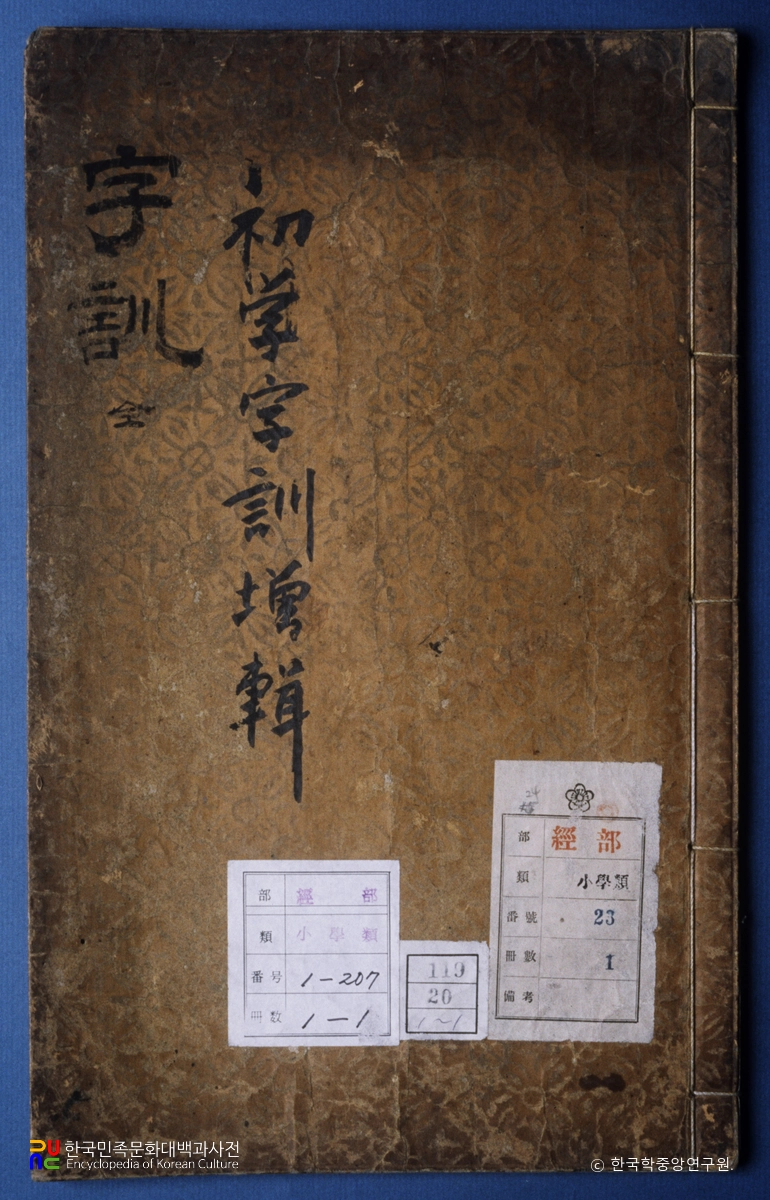 字訓
全
初学字訓增輯
部 經部
類 小學類
番号 1-207
冊数 1-1
119
20
1~1
部 經部
類 小學類
番號 23
冊數 1
備考
한국민족문화대백과사전
Encyclopedia of Korean Culture
© 한국학중앙연구원.